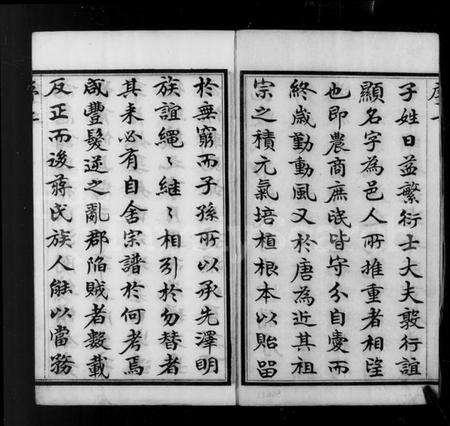 子姓日益繁衍士大夫敦行誼
顯名字為邑人所推重者相望
也即農商庶氓皆守分自愛而
終歲勤動風又於唐為近其祖
宗之積元氣培植根本以貽留
於無窮而子孫所以承先澤明
族誼繩〻繼〻相引於勿替者
其来必有自舍宗譜於何考焉
咸豐髮逆之亂郡陷賊者數載
反正而後蔣氏族人能以當務